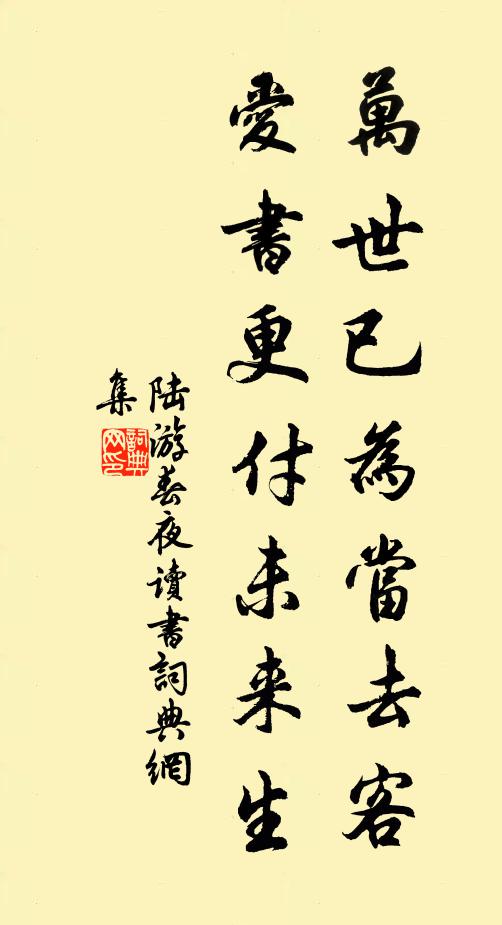 萬世已為當去客
愛書更付未来生
陆游春夜讀書詞典網
集
詞典網印